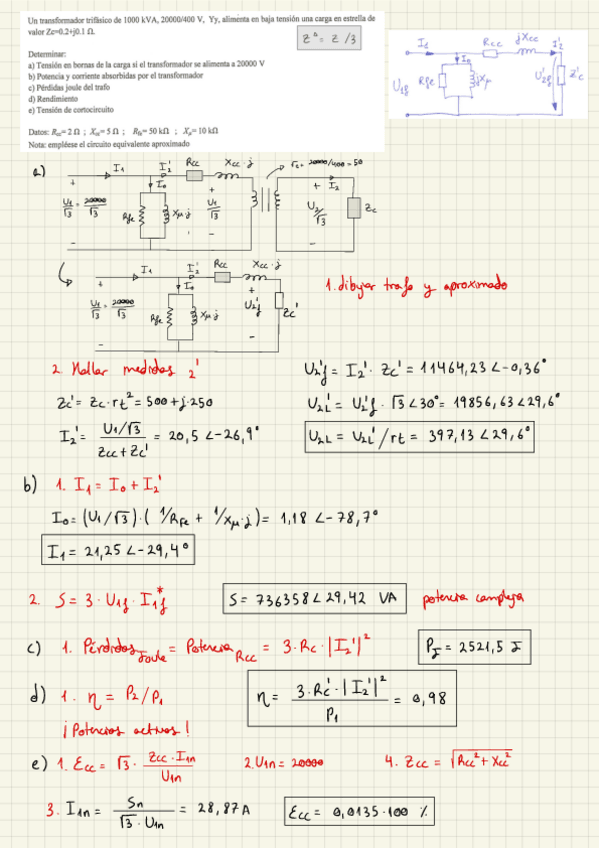 Un transformador trifásico de 1000 kVA, 20000/400 V, Yy, alimenta en baja tensión una carga en estrella de
valor Zc=0.2+j0.1 Ω.
Z^Δ = Z /3
Determinar:
a) Tensión en bornas de la carga si el transformador se alimenta a 20000 V
b) Potencia y corriente absorbidas por el transformador
c) Pérdidas joule del trafo
d) Rendimiento
e) Tensión de cortocircuito
Datos: Rcc= 2 Ω ; Xcc= 5 Ω ; Rfe= 50 kΩ ; Xμ= 10 kΩ
Nota: empléese el circuito equivalente aproximado
I1 Rcc jXcc I2'
I0
U1f Rfe jXμ U2'f Z'c
a)
I1 I2' Rcc Xcc·j rt = 20000/400 = 50
I0 + I2
U1/√3 = 20000/√3 Rfe Xμ·j U1'/√3 U2/√3 Zc
I1 I2' Rcc Xcc·j
I0
U1/√3 = 20000/√3 Rfe Xμ·j U2'f Zc'
1. dibujar trafo y aproximado
2. Hallar medidas 2'
Zc' = Zc·rt² = 500+j·250
I2' = U1/√3 / Zcc+Zc' = 20,5 ∠-26,9°
U2'f = I2' · Zc' = 11464,23 ∠-0,36°
U2L' = U2'f · √3 ∠30° = 19856,63 ∠29,6°
U2L = U2L'/rt = 397,13 ∠29,6°
b) 1. I1 = I0 + I2'
I0 = (U1/√3)·(1/Rfe + 1/Xμ·j) = 1,18 ∠-78,7°
I1 = 21,25 ∠-29,4°
2. S = 3·U1f·I1f* S = 736358 ∠29,42 VA potencia compleja
c) 1. Pérdidas Joule = Potencia Rcc = 3·Rc·|I2'|² PJ = 2521,5 J
d) 1. η = P2/P1 η = 3·Rc'·|I2'|² / P1 = 0,98
¡Potencias activas!
e) 1. Ecc = √3 · Zcc·I1n / U1n 2. U1n = 20000 4. Zcc = √Rcc²+Xcc²
3. I1n = Sn / √3·U1n = 28,87A Ecc = 0,0135·100 %